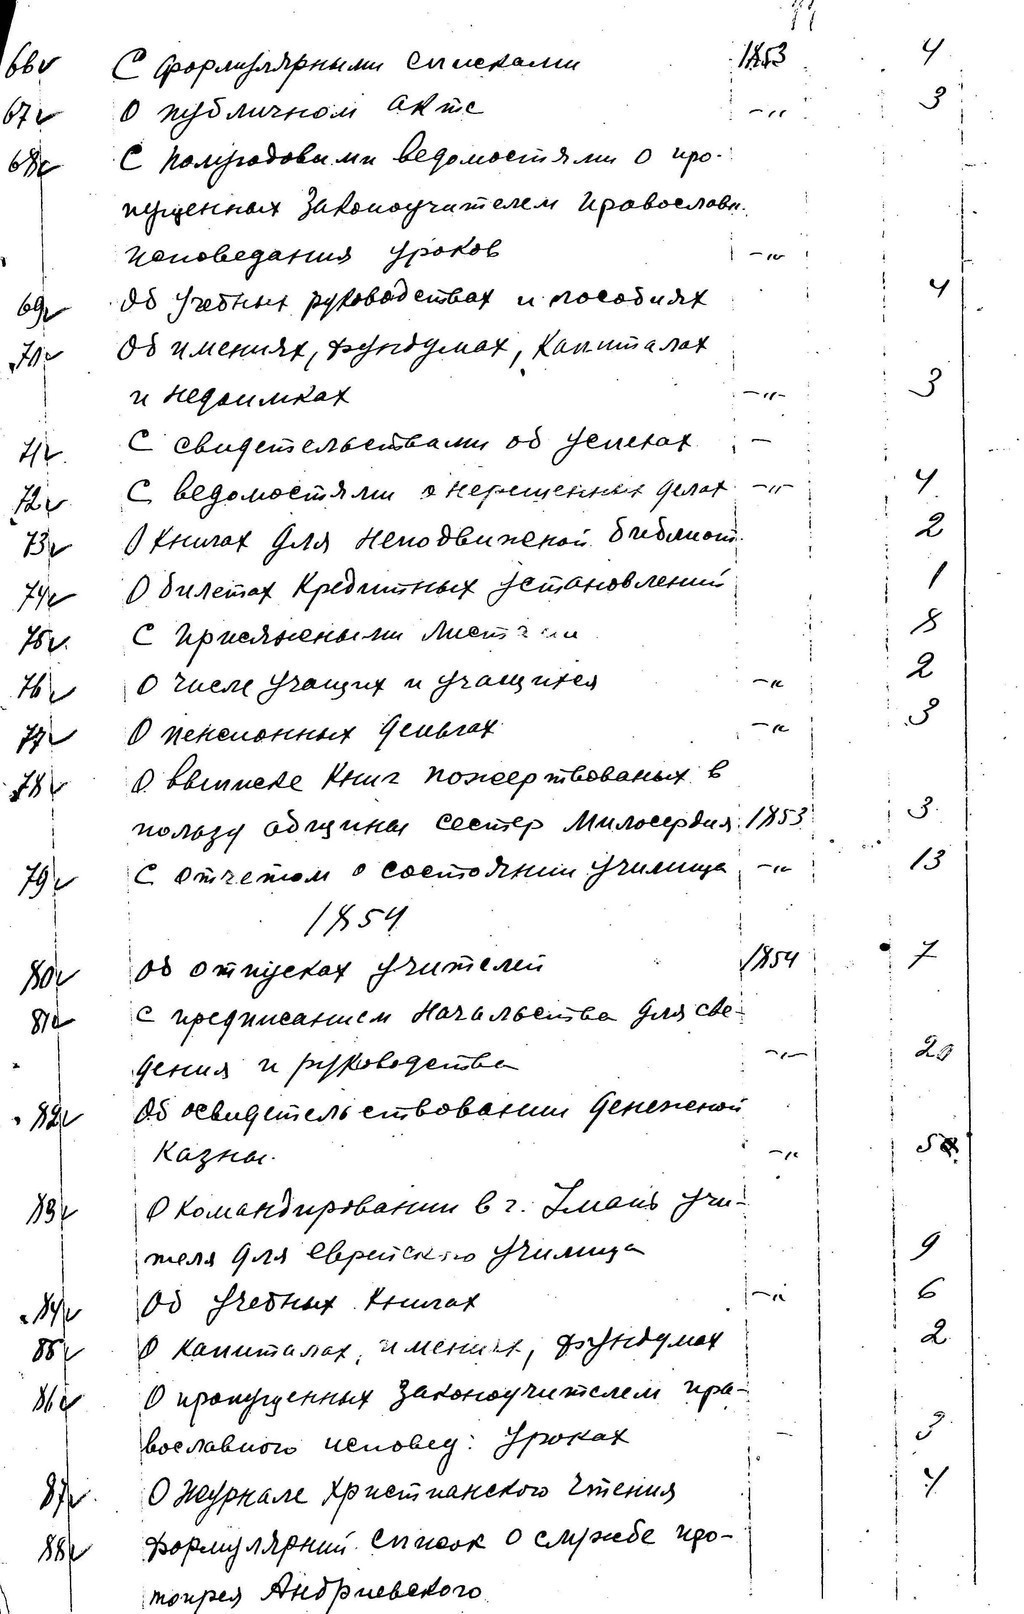 66 С формулярными списками 1853 4
67 О публичном акте -"- 3
68 С полугодовыми ведомостями о про-
пущенных Законоучителем Православн.
исповедания уроков -"-
69 Об учебных руководствах и пособиях 4
70 Об имениях, фундумах, капиталах
и недоимках -"- 3
71 С свидетельствами об успехах -
72 С ведомостями о нерешенных делах -"- 4
73 О книгах для неподвижной библиот. 2
74 О билетах Кредитных установлений 1
75 С присяжными листами 8
76 О числе учащих и учащихся -"- 2
77 О пенсионных деньгах -"- 3
78 О выписке книг пожертвованых в
пользу общины сестер Милосердия 1853 3
79 С отчетом о состоянии училища -"- 13
1854
80 Об отпусках учителей 1854 7
81 С предписанием Начальства для све-
дения и руководства -"- 20
82 Об освидетельствовании денежной
казны. -"-
83 О командировании в г. Умань учи-
теля для еврейского училища 9
84 Об учебных книгах -"- 6
85 О капиталах, имениях, фундумах 2
86 О пропущенных Законоучителем пра-
вославного исповед: уроках - 3
87 О журнале Христианского чтения 4
88 Формулярный список о службе про-
тоирея Андриевского